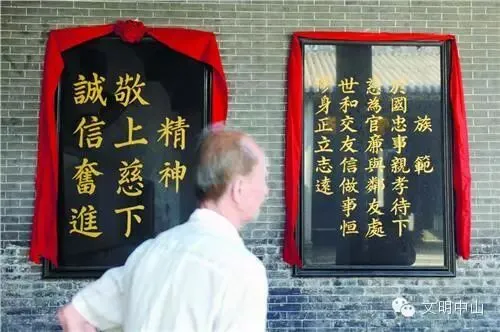 精神
敬上慈下
誠信奮進
族範
於國忠事親孝待下
慈為官廉與鄰友處
世和交友信做事恒
修身正立志遠
文明中山